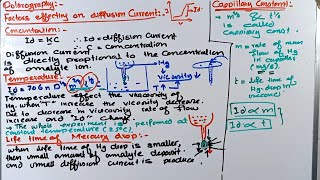 Polarography:-
Factors effecting on diffusion Current:-
Concentration:-
Id = KC
Id = diffusion Current
C = Concentration
Diffusion Current is directly proportional to the Concentration
of analyte ion.
Temperature
Id = 706 n D½ m⅔ t⅙
Viscosity
Temperature effect the viscosity of
Hg. when "T" increase the viscosity decrease.
Due to decrease in viscosity rate of flow
increase and "Id" change.
→ The whole experiment is performed at
constant temperature
Life time of Mercury drop:-
when life time of Hg drop is smaller,
then small amount of analyte deposit
and small diffusion current is produce.
Cappillary Constant:-
m⅔ & t⅙
called as
Capillary Const.
m = rate of mass
flow of Hg
t = life time of
Hg drop in
Id ∝ m
Id ∝ t